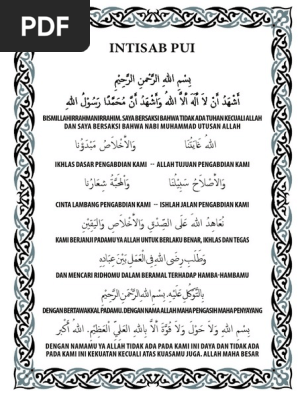 PDF
INTISAB PUI
بِسْمِ اللهِ الرَّحْمنِ الرَّحِيْمِ
أَشْهَدُ أَنْ لَا اِلَهَ اِلَّا اللهُ وَأَشْهَدُ أَنَّ مُحَمَّدًا رَسُوْلُ اللهِ
BISMILLAHIRRAHMANIRRAHIM. SAYA BERSAKSI BAHWA TIDAK ADA TUHAN KECUALI ALLAH
DAN SAYA BERSAKSI BAHWA NABI MUHAMMAD UTUSAN ALLAH
اللهُ غَايَتُنَا وَالْاِخْلَاصُ مَبْدَؤُنَا
IKHLAS DASAR PENGABDIAN KAMI -- ALLAH TUJUAN PENGABDIAN KAMI
وَالْاِصْلَاحُ سَبِيْلُنَا وَالْمَحَبَّةُ شِعَارُنَا
CINTA LAMBANG PENGABDIAN KAMI -- ISHLAH JALAN PENGABDIAN KAMI
نُعَاهِدُ اللهَ عَلَى الصِّدْقِ وَالْاِخْلَاصِ وَالْيَقِيْنِ
KAMI BERJANJI PADAMU YA ALLAH UNTUK BERLAKU BENAR, IKHLAS DAN TEGAS
وَطَلَبِ رِضَى اللهِ فِى الْعَمَلِ بَيْنَ عِبَادِهِ
DAN MENCARI RIDHOMU DALAM BERAMAL TERHADAP HAMBA-HAMBAMU
بِالتَّوَكُّلِ عَلَيْهِ. بِسْمِ اللهِ الرَّحْمنِ الرَّحِيْمِ
DENGAN BERTAWAKKAL PADAMU. DENGAN NAMA ALLAH MAHA PENGASIH MAHA PENYAYANG
بِسْمِ اللهِ وَلَا حَوْلَ وَلَا قُوَّةَ اِلَّا بِاللهِ الْعَلِيِّ الْعَظِيْمِ. اللهُ أَكْبَر
DENGAN NAMAMU YA ALLAH TIDAK ADA PADA KAMI INI DAYA DAN TIDAK ADA
PADA KAMI INI KEKUATAN KECUALI ATAS KUASAMU JUGA. ALLAH MAHA BESAR